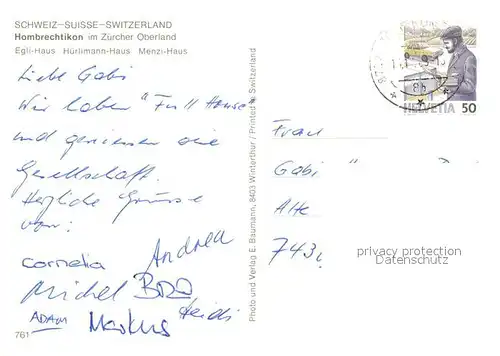 SCHWEIZ–SUISSE–SWITZERLAND
Hombrechtikon im Zürcher Oberland
Egli-Haus Hürlimann-Haus Menzi-Haus
Liebe Gabi
Wir haben "Full House"
und geniessen die
Gesellschaft.
Herzliche Grüsse
von:
Andrea
Cornelia
Michel BRO
Heidi
ADAM Markus
761
Photo und Verlag E. Baumann, 8403 Winterthur / Printed in Switzerland
HELVETIA 50
Frau
Gabi
Alte
743
privacy protection
Datenschutz